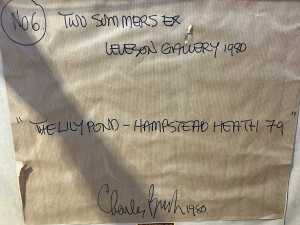 No 6. TWO SUMMERS EX
LEVESON GALLERY 1980
"THE LILY POND - HAMPSTEAD HEATH 79"
Charles Bush 1980